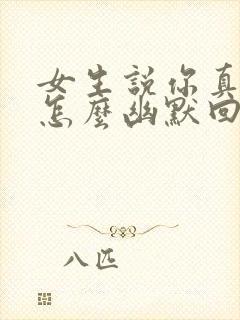 女生説你真
怎麼幽默回
八匹